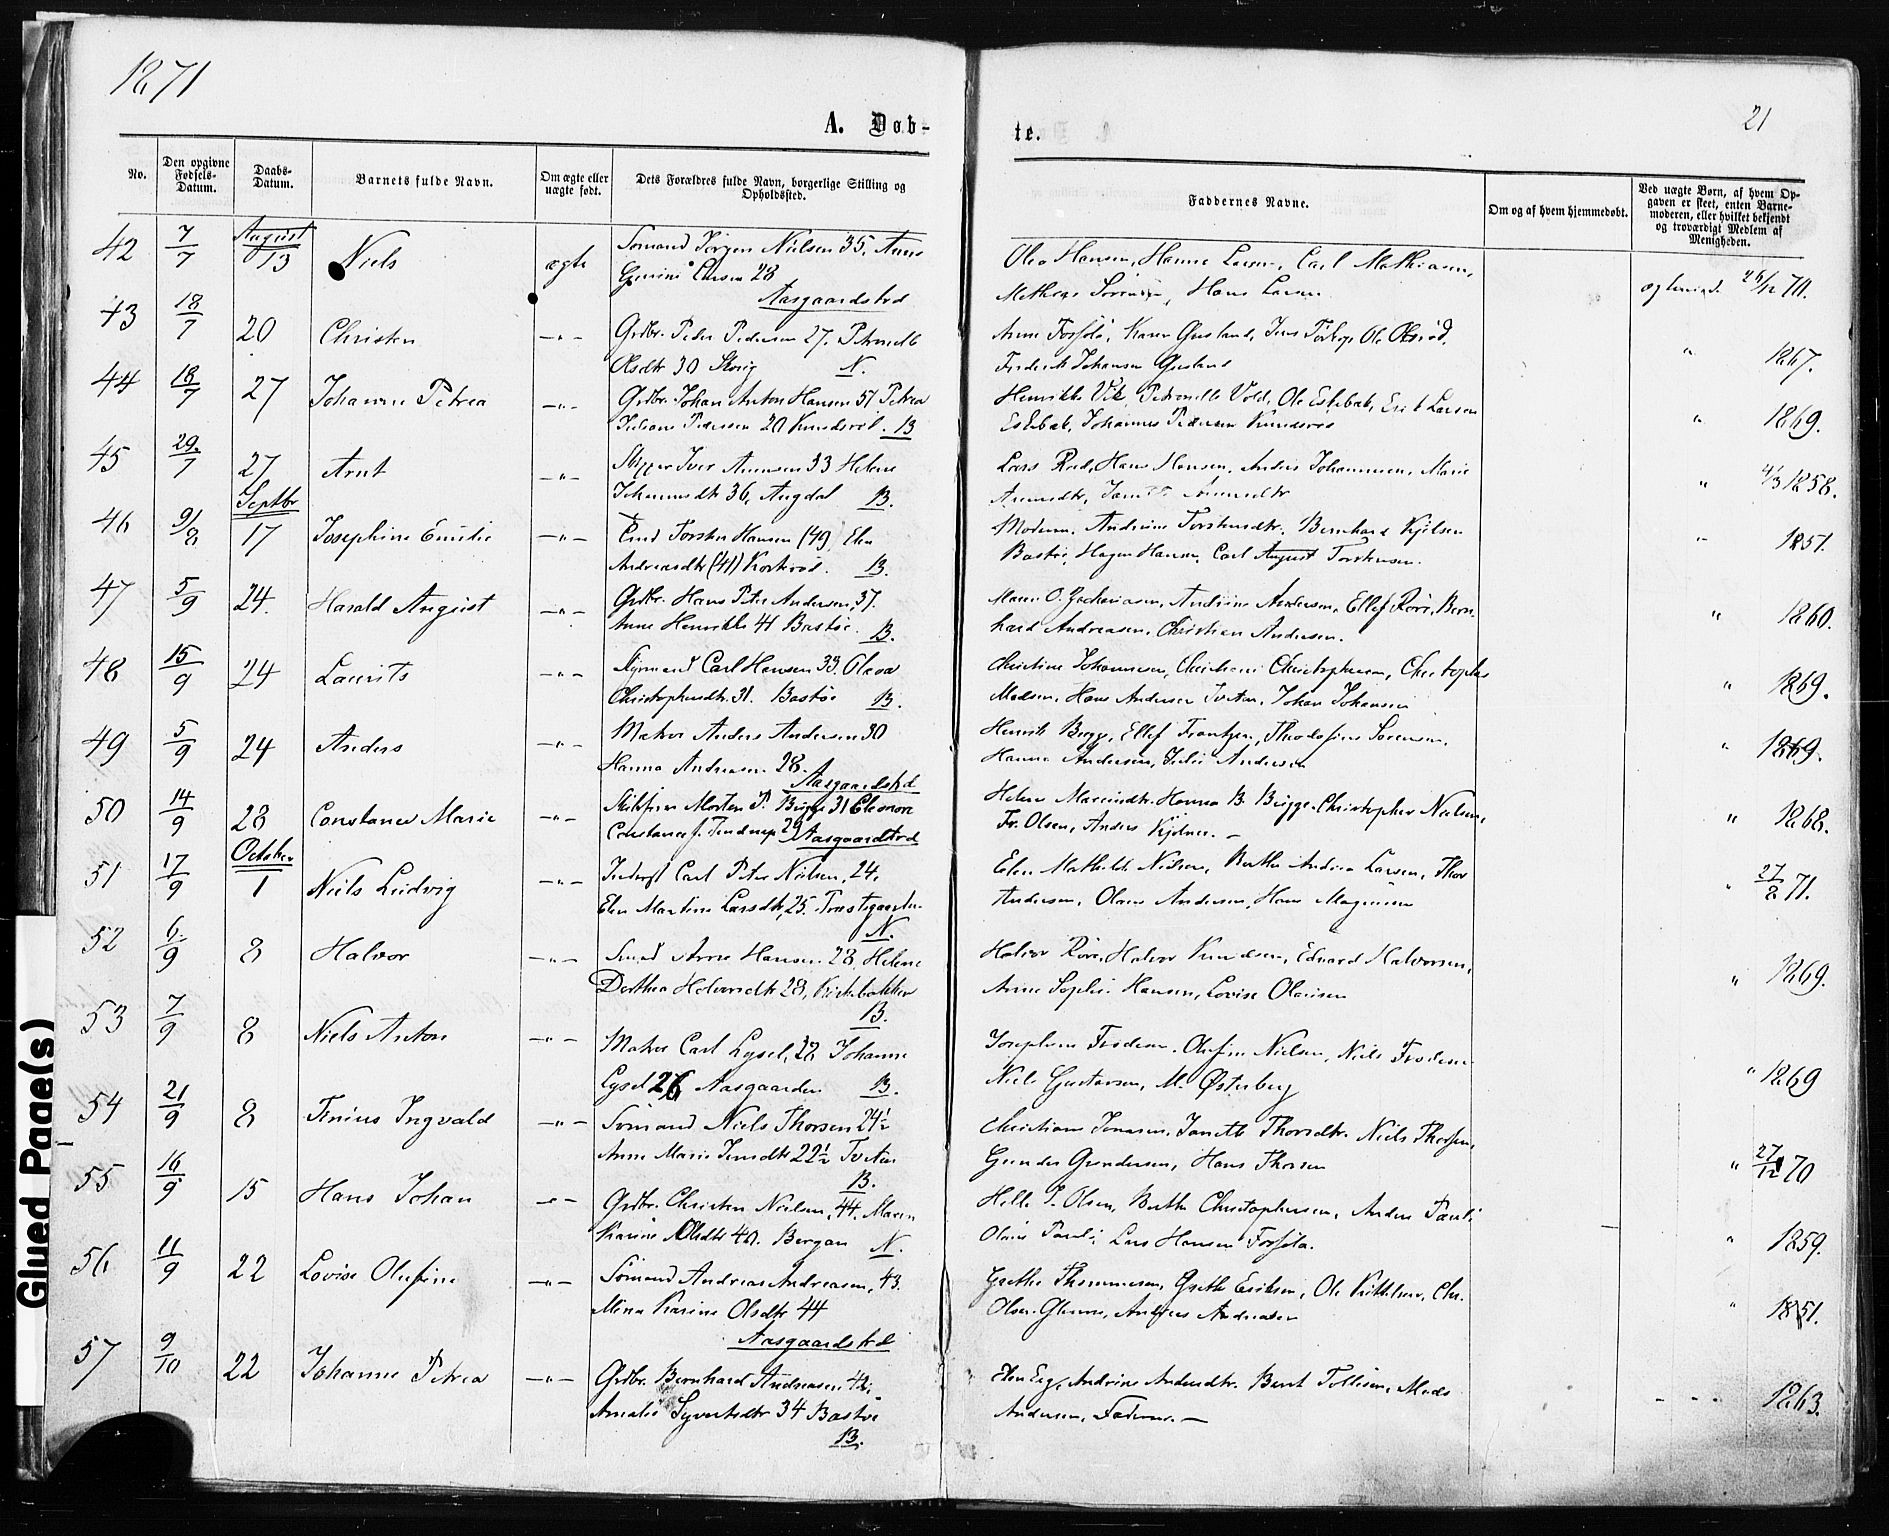 1871
A. Døb-
te.
21
No.
Den opgivne Fødsels-Datum.
Daabs-Datum.
Barnets fulde Navn.
Om ægte eller uægte født.
Dets Forældres fulde Navn, borgerlige Stilling og Opholdssted.
Faddernes Navne.
Om og af hvem hjemmedøbt.
Ved uægte Børn, af hvem Opgaven er skeet, enten Barnemoderen, eller hvilket bekjendt og troværdigt Medlem af Menigheden.
42 7/7 August 13 Niels ægte Sømand Jørgen Nielsen 35, Anne
Larsen 28
Aasgaardstrd
Olea Hansen, Hanne Larsen, Carl Mathiasen,
Hans Larsen 26/12 70.
43 18/7 20 Christen -"- Grdbr. Peder Pedersen 27. Petronelle
Olsdtr 30 N.
Frederik Johansen
" 1867.
44 18/7 27 Johanne Petrea -"- Grdbr. Johan Anton Hansen 51 Petrea
Juliane Pedersen B.
Henrikke Vik Petronelle Vold, Ole Eskebæk, Erik Larsen
Eskebæk, Johannes Pedersen
" 1869.
45 29/7 27 Arnt -"- Skipper Iver Arnesen 33 Helene
Johannesdtr 36, Augdal B.
Lars Rød, Hans Hansen, Anders Johannesen, Marie
" 4/3 1858.
46 9/8 Septbr 17 Josephine Emilie -"- Torsten Hansen (49) Elen
Andreasdtr (41) B.
Moderen, Andrine Torstensdtr. Bernhard Kjelsen
Bastøe, Hagen Hansen, Carl August Torstensen.
" 1851.
47 5/9 24. Harald August -"- Grdbr. Hans Peter Andersen, 37.
Anne Henrikke 41 Bastøe. B.
Maren O. Zachariasen, Andrine Andersen, Ellef Røre, Bern-
hard Andreasen, Christian Andersen.
" 1860.
48 15/9 24 Laurits -"- Carl Hansen 33. Olava
Christophersdtr 31. Bastøe B.
Christine Johannesen, Christiane Christophersen, Christopher
Madsen, Hans Andersen Tveten, Johan Johansen
" 1869.
49 5/9 24 Anders -"- Matros Anders Andersen 30
Hanna Andreasen 28.
Aasgaardstrd
Henrik Bugge, Ellef Frantzen, Theodosine Sørensen,
Hanna Andersen, Julie Andersen
" 1869.
50 14/9 28 Constance Marie -"- Morten P. Bugge 31 Eleonora
Constance f. 29 Aasgaardstrd
Helene Hanna B. Bugge. Christopher Nielsen,
Fr. Olsen, Anders
" 1868.
51 17/9 October 1 Niels Ludvig -"- Carl Peter Nielsen, 24.
Elen Martine Larsdtr, 25.
N.
Elen Mathilde Nielsen, Berthe Andrea Larsen, Thor
Andersen, Olaus Andersen, Hans Magnusen
" 27/8 71.
52 6/9 8 Halvor -"- Arne Hansen 28 Helene
Dorthea Halvorsdtr 28, Kirkebakken
B.
Halvor Røre, Halvor Knudsen, Edvard Halvorsen,
Anne Sophie Hansen, Lovise Olausen
" 1869.
53 7/9 8 Niels Anton -"- Matros Carl Lysel, 28 Johanne
Lysel 26 Aasgaarden B.
Josephine Frodesen, Olufine Nielsen, Niels Frodesen
Niels Gustavsen, M. Østerberg
" 1869
54 21/9 8 Tinius Ingvald -"- Sømand Niels Thorsen 24½
Anne Marie Jensdtr 22½ Tveten
B.
Christiane Jonasen, Janette Thorsdtr. Niels Thorsen,
Gunder Gundersen, Hans Thorsen
" 27/12 70
55 16/9 15 Hans Johan -"- Grdbr. Christen Nielsen, 44. Maren
Karine Olsdtr 40. Bergan N.
Helle P. Olsen, Berthe Christophersen, Anders Pauli,
Olaus Pauli, Lars Hansen
" 1859.
56 11/9 22 Lovise Olufine -"- Sømand Andreas Andreasen, 43.
Mina Karine Olsdtr 44
Aasgaardstrd
Grethe Thommesen, Grethe Eriksen, Ole Kittelsen, Chr.
Olsen Andreas Andreasen
" 1851.
57 9/10 22 Johanne Petrea -"- Grdbr. Bernhard Andreasen 42,
Amalie Syvertsdtr 34 Bastøe
B.
Andrine Andersdtr. Bernt Tollesen, Mads
Andersen, Faderen. —
" 1863.
Glued Page(s)